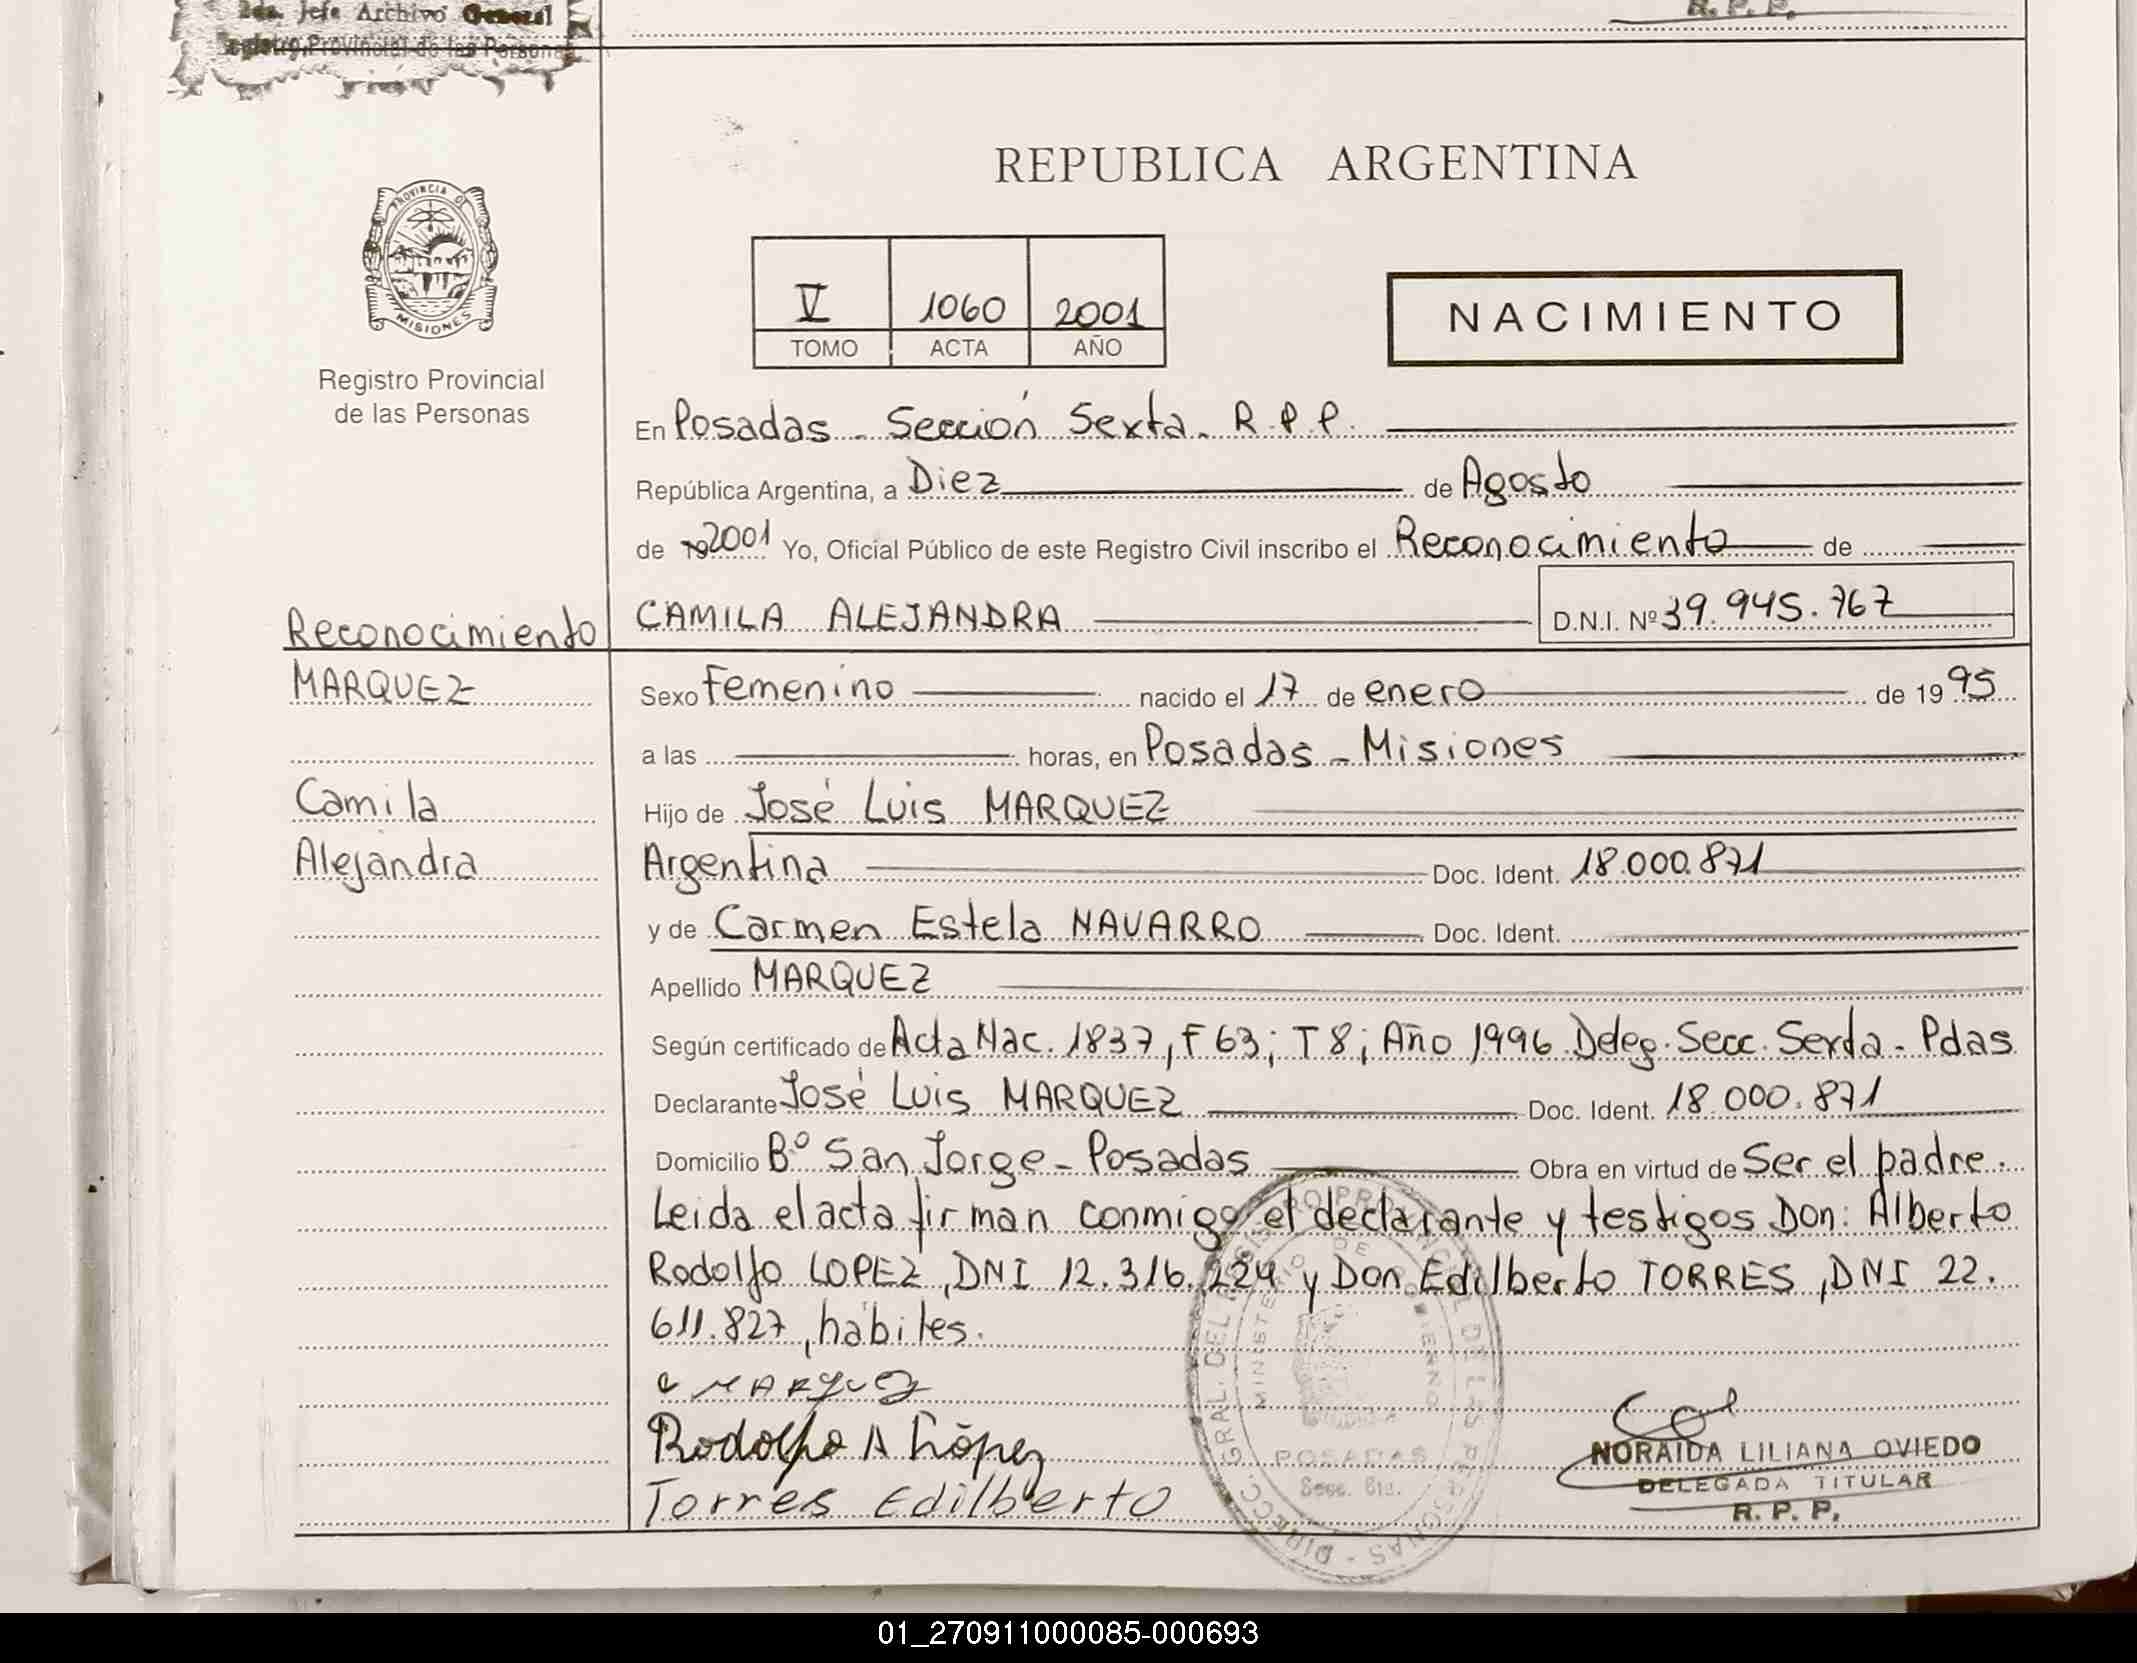 2da. Jefe Archivo General
Registro Provincial de las Personas
R. P. P.
PROVINCIA DE
MISIONES
Registro Provincial
de las Personas
REPUBLICA ARGENTINA
V 1060 2001
TOMO ACTA AÑO
NACIMIENTO
En Posadas - Sección Sexta - R.P.P.
República Argentina, a Diez de Agosto
de 192001 Yo, Oficial Público de este Registro Civil inscribo el Reconocimiento de
Reconocimiento
CAMILA ALEJANDRA D.N.I. Nº 39.945.767
MARQUEZ
Sexo Femenino nacido el 17 de enero de 1995
a las horas, en Posadas - Misiones
Camila
Hijo de José Luis MARQUEZ
Alejandra
Argentina Doc. Ident. 18.000.871
y de Carmen Estela NAVARRO Doc. Ident.
Apellido MARQUEZ
Según certificado de Acta Nac. 1837, F 63; T 8; Año 1996 Deleg. Secc. Sexta - Pdas
Declarante José Luis MARQUEZ Doc. Ident. 18.000.871
Domicilio Bº San Jorge - Posadas Obra en virtud de Ser el padre.
Leida el acta firman conmigo el declarante y testigos Don: Alberto
Rodolfo LOPEZ, DNI 12.316.224 y Don Edilberto TORRES, DNI 22.
611.827, hábiles.
MARQUEZ
Rodolfo A López
Torres Edilberto
DIRECC. GRAL. DEL REGISTRO PROVINCIAL DE LAS PERSONAS
MINISTERIO DE GOBIERNO
POSADAS
Secc. 6ta.
NORAIDA LILIANA OVIEDO
DELEGADA TITULAR
R. P. P.
01_270911000085-000693